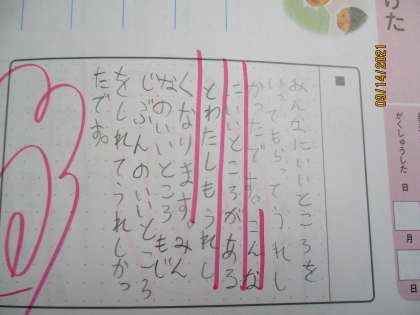 けた
がくしゅうした
日
月
日
■
みんなにいいところを
いってもらってうれし
かったです。こんな
にいいところがある
とわたしもうれし
くなります。みん
なのいいところもじ
じぶんのいいところ
をしれてうれしかっ
たです。
09/14/2021